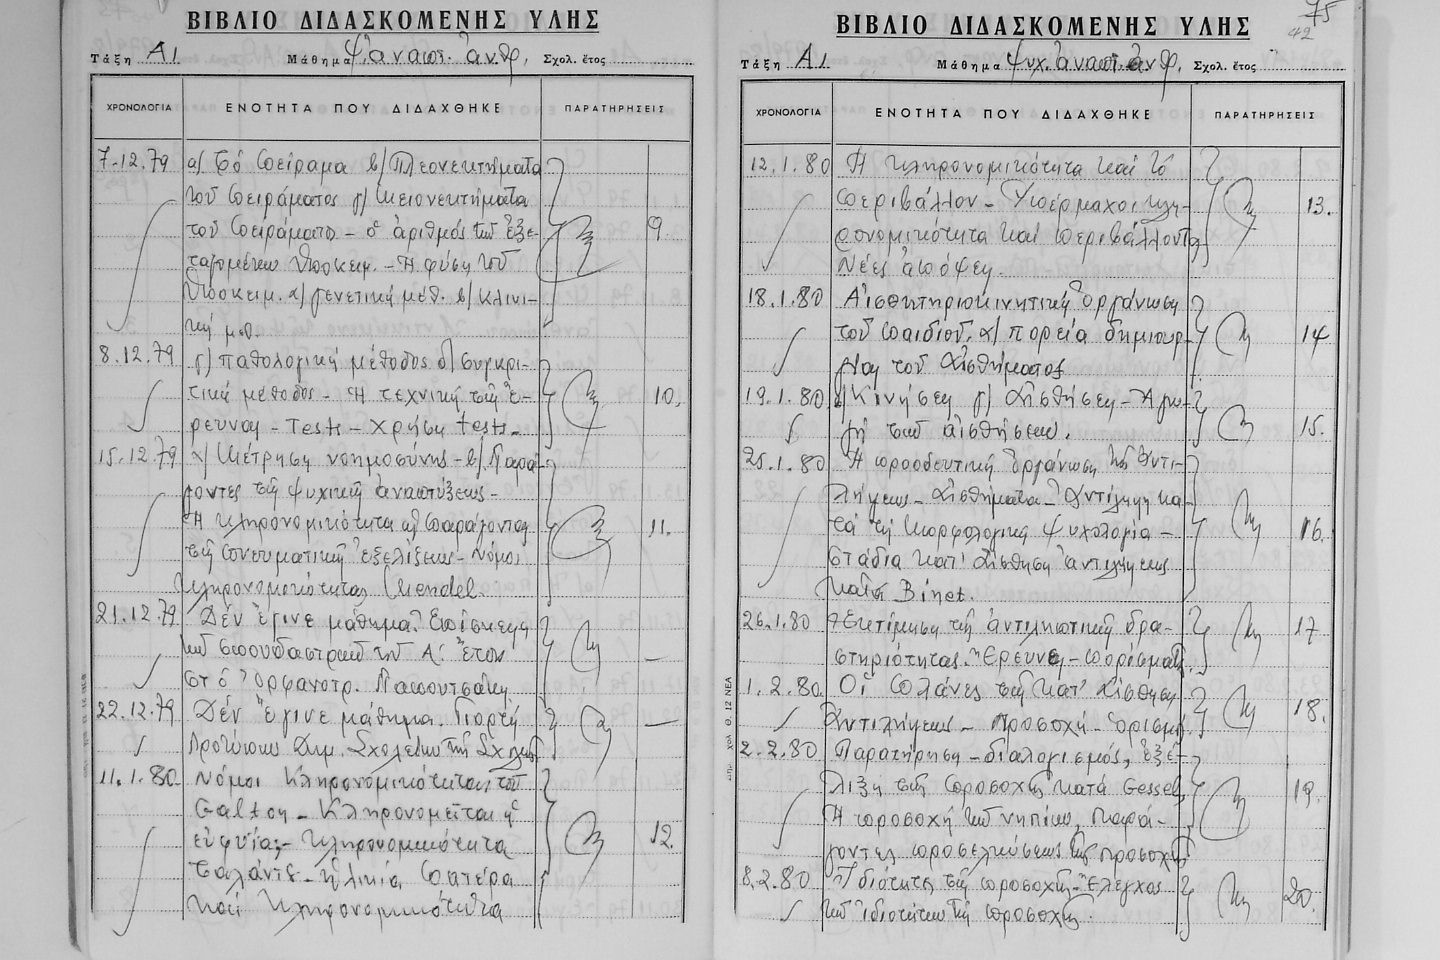 ΒΙΒΛΙΟ ΔΙΔΑΣΚΟΜΕΝΗΣ ΥΛΗΣ
Τάξη Α1. Μάθημα Ψ. αναπτ. ανθρ. Σχολ. έτος
ΧΡΟΝΟΛΟΓΙΑ ΕΝΟΤΗΤΑ ΠΟΥ ΔΙΔΑΧΘΗΚΕ ΠΑΡΑΤΗΡΗΣΕΙΣ
7-12.79 α/ Τό πείραμα β/ Πλεονεκτήματα
τοῦ πειράματος γ/ Μειονεκτήματα
τοῦ πειράματος - ὁ ἀριθμός τῶν ἐξε- 9.
ταζομένων ὑποκειμ. - Ἡ φύση τοῦ
ὑποκειμ. α/ γενετική μέθ. β/ κλινι-
κή μεθ.
8.12.79 γ/ παθολογική μέθοδος δ/ συγκρι-
τική μέθοδος - Ἡ τεχνική τῆς ἔ- 10.
ρευνας - Tests - χρήση tests -
15.12.79 α/ Μέτρηση νοημοσύνης - β/ Παρά-
γοντες τῆς ψυχικῆς ἀναπτύξεως -
Ἡ κληρονομικότητα ὡς παράγοντας 11.
τῆς πνευματικῆς ἐξελίξεως - Νόμοι
κληρονομικότητας Mendel
21.12.79 Δέν ἔγινε μάθημα. Ἐπίσκεψη
τῶν σπουδαστριῶν τοῦ Α' ἔτους —
στό Ὀρφανοτρ. Παπουτσάκη
22.12.79 Δέν ἔγινε μάθημα. Γιορτή —
Προτύπων Δημ. Σχολείων τῆς Σχολῆς
11.1.80 Νόμοι Κληρονομικότητας τοῦ
Galton - Κληρονομεῖται ἡ
εὐφυΐα; - Κληρονομικότητα 12.
ταλάντου - ἡλικία πατέρα
καί κληρονομικότητα
75
42
ΒΙΒΛΙΟ ΔΙΔΑΣΚΟΜΕΝΗΣ ΥΛΗΣ
Τάξη Α1. Μάθημα Ψυχ. ἀναπτ. ἀνθρ. Σχολ. έτος
ΧΡΟΝΟΛΟΓΙΑ ΕΝΟΤΗΤΑ ΠΟΥ ΔΙΔΑΧΘΗΚΕ ΠΑΡΑΤΗΡΗΣΕΙΣ
12.1.80 Ἡ κληρονομικότητα καί τό
περιβάλλον - Ὑπέρμαχοι κλη- 13.
ρονομικότητας καί περιβάλλοντος
Νέες ἀπόψεις.
18.1.80 Αἰσθητηριοκινητική ὀργάνωση
τοῦ παιδιοῦ. α/ πορεία δημιουρ- 14
γίας τοῦ αἰσθήματος
19.1.80 β/ Κινήσεις γ/ Αἰσθήσεις - Ἀγω-
γή τῶν αἰσθήσεων. 15.
25.1.80 Ἡ προοδευτική ὀργάνωση τῆς ἀντι-
λήψεως - Αἰσθήματα - Ἀντίληψη κα-
τά τή Μορφολογική Ψυχολογία - 16.
στάδια κατ' αἴσθηση ἀντιλήψεως
κατά Binet.
26.1.80 Ἐκτίμηση τῆς ἀντιληπτικῆς δρα- 17
στηριότητας. Ἔρευνες - πορίσματα
1.2.80 Οἱ πλάνες τῆς κατ' αἴσθηση 18.
ἀντιλήψεως - Προσοχή - ὁρισμός
2.2.80 Παρατήρηση - διαλογισμός, ἐξέ-
λιξη τῆς προσοχῆς κατά Gessell 19.
Ἡ προσοχή τῶν νηπίων, Παρά-
γοντες προσελκύσεως τῆς προσοχῆς
8.2.80 Ἰδιότητες τῆς προσοχῆς - Ἔλεγχος 20.
τῶν ἰδιοτήτων τῆς προσοχῆς.